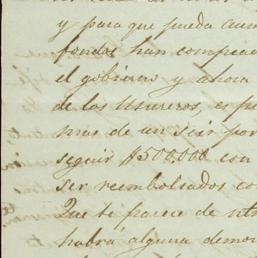 y para que pueda aum
fondos han
el gobierno y ahora
de los Usureros, es pe
mas de un seis por
seguir $500.000 con
ser reembolsados co
Que te parece de
habrá alguna demor